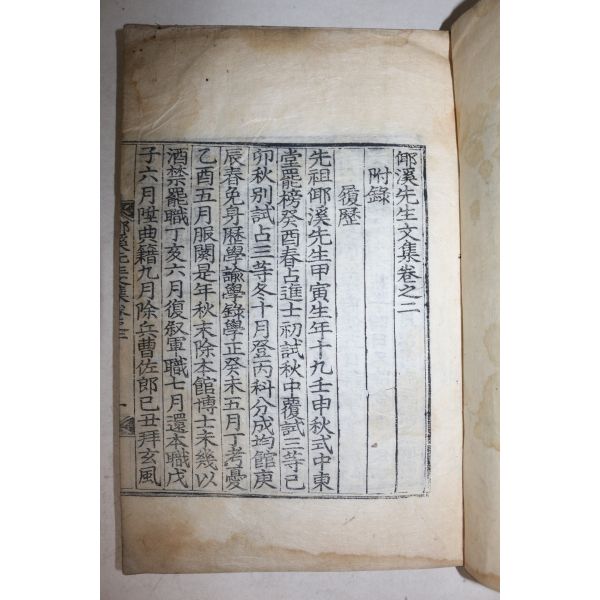 倻溪先生文集卷之二
附錄
履歷
先祖倻溪先生甲寅生年十九壬申秋式中東
堂罷榜癸酉春占進士初試秋中覆試三等己
卯秋別試占三等冬十月登丙科分成均館庚
辰春免身歷學諭學錄學正癸未五月丁考憂
乙酉五月服闋是年秋末除本館博士未幾以
酒禁罷職丁亥六月復叙軍職七月還本職戊
子六月陞典籍九月除兵曹佐郎己丑拜玄風
倻溪先生文集卷之二
一